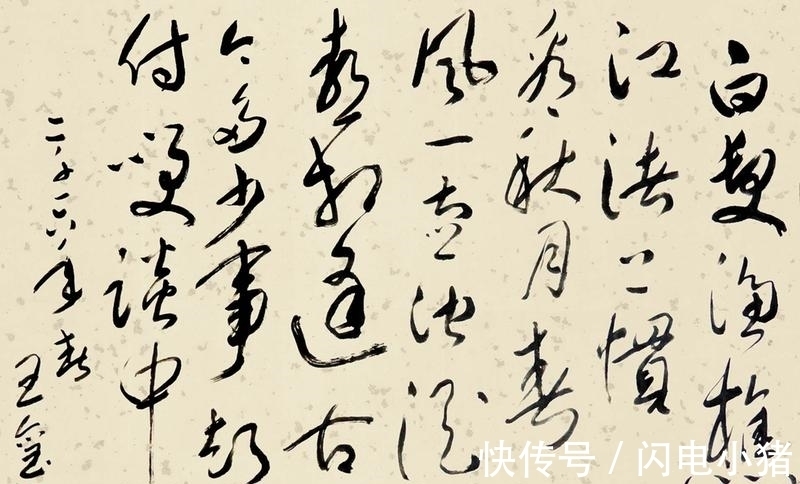 白髮渔樵
江渚上惯
看秋月春
风一壶浊酒
喜相逢古
今多少事都
付笑谈中
年春
王
快传号 / 闪电小猪